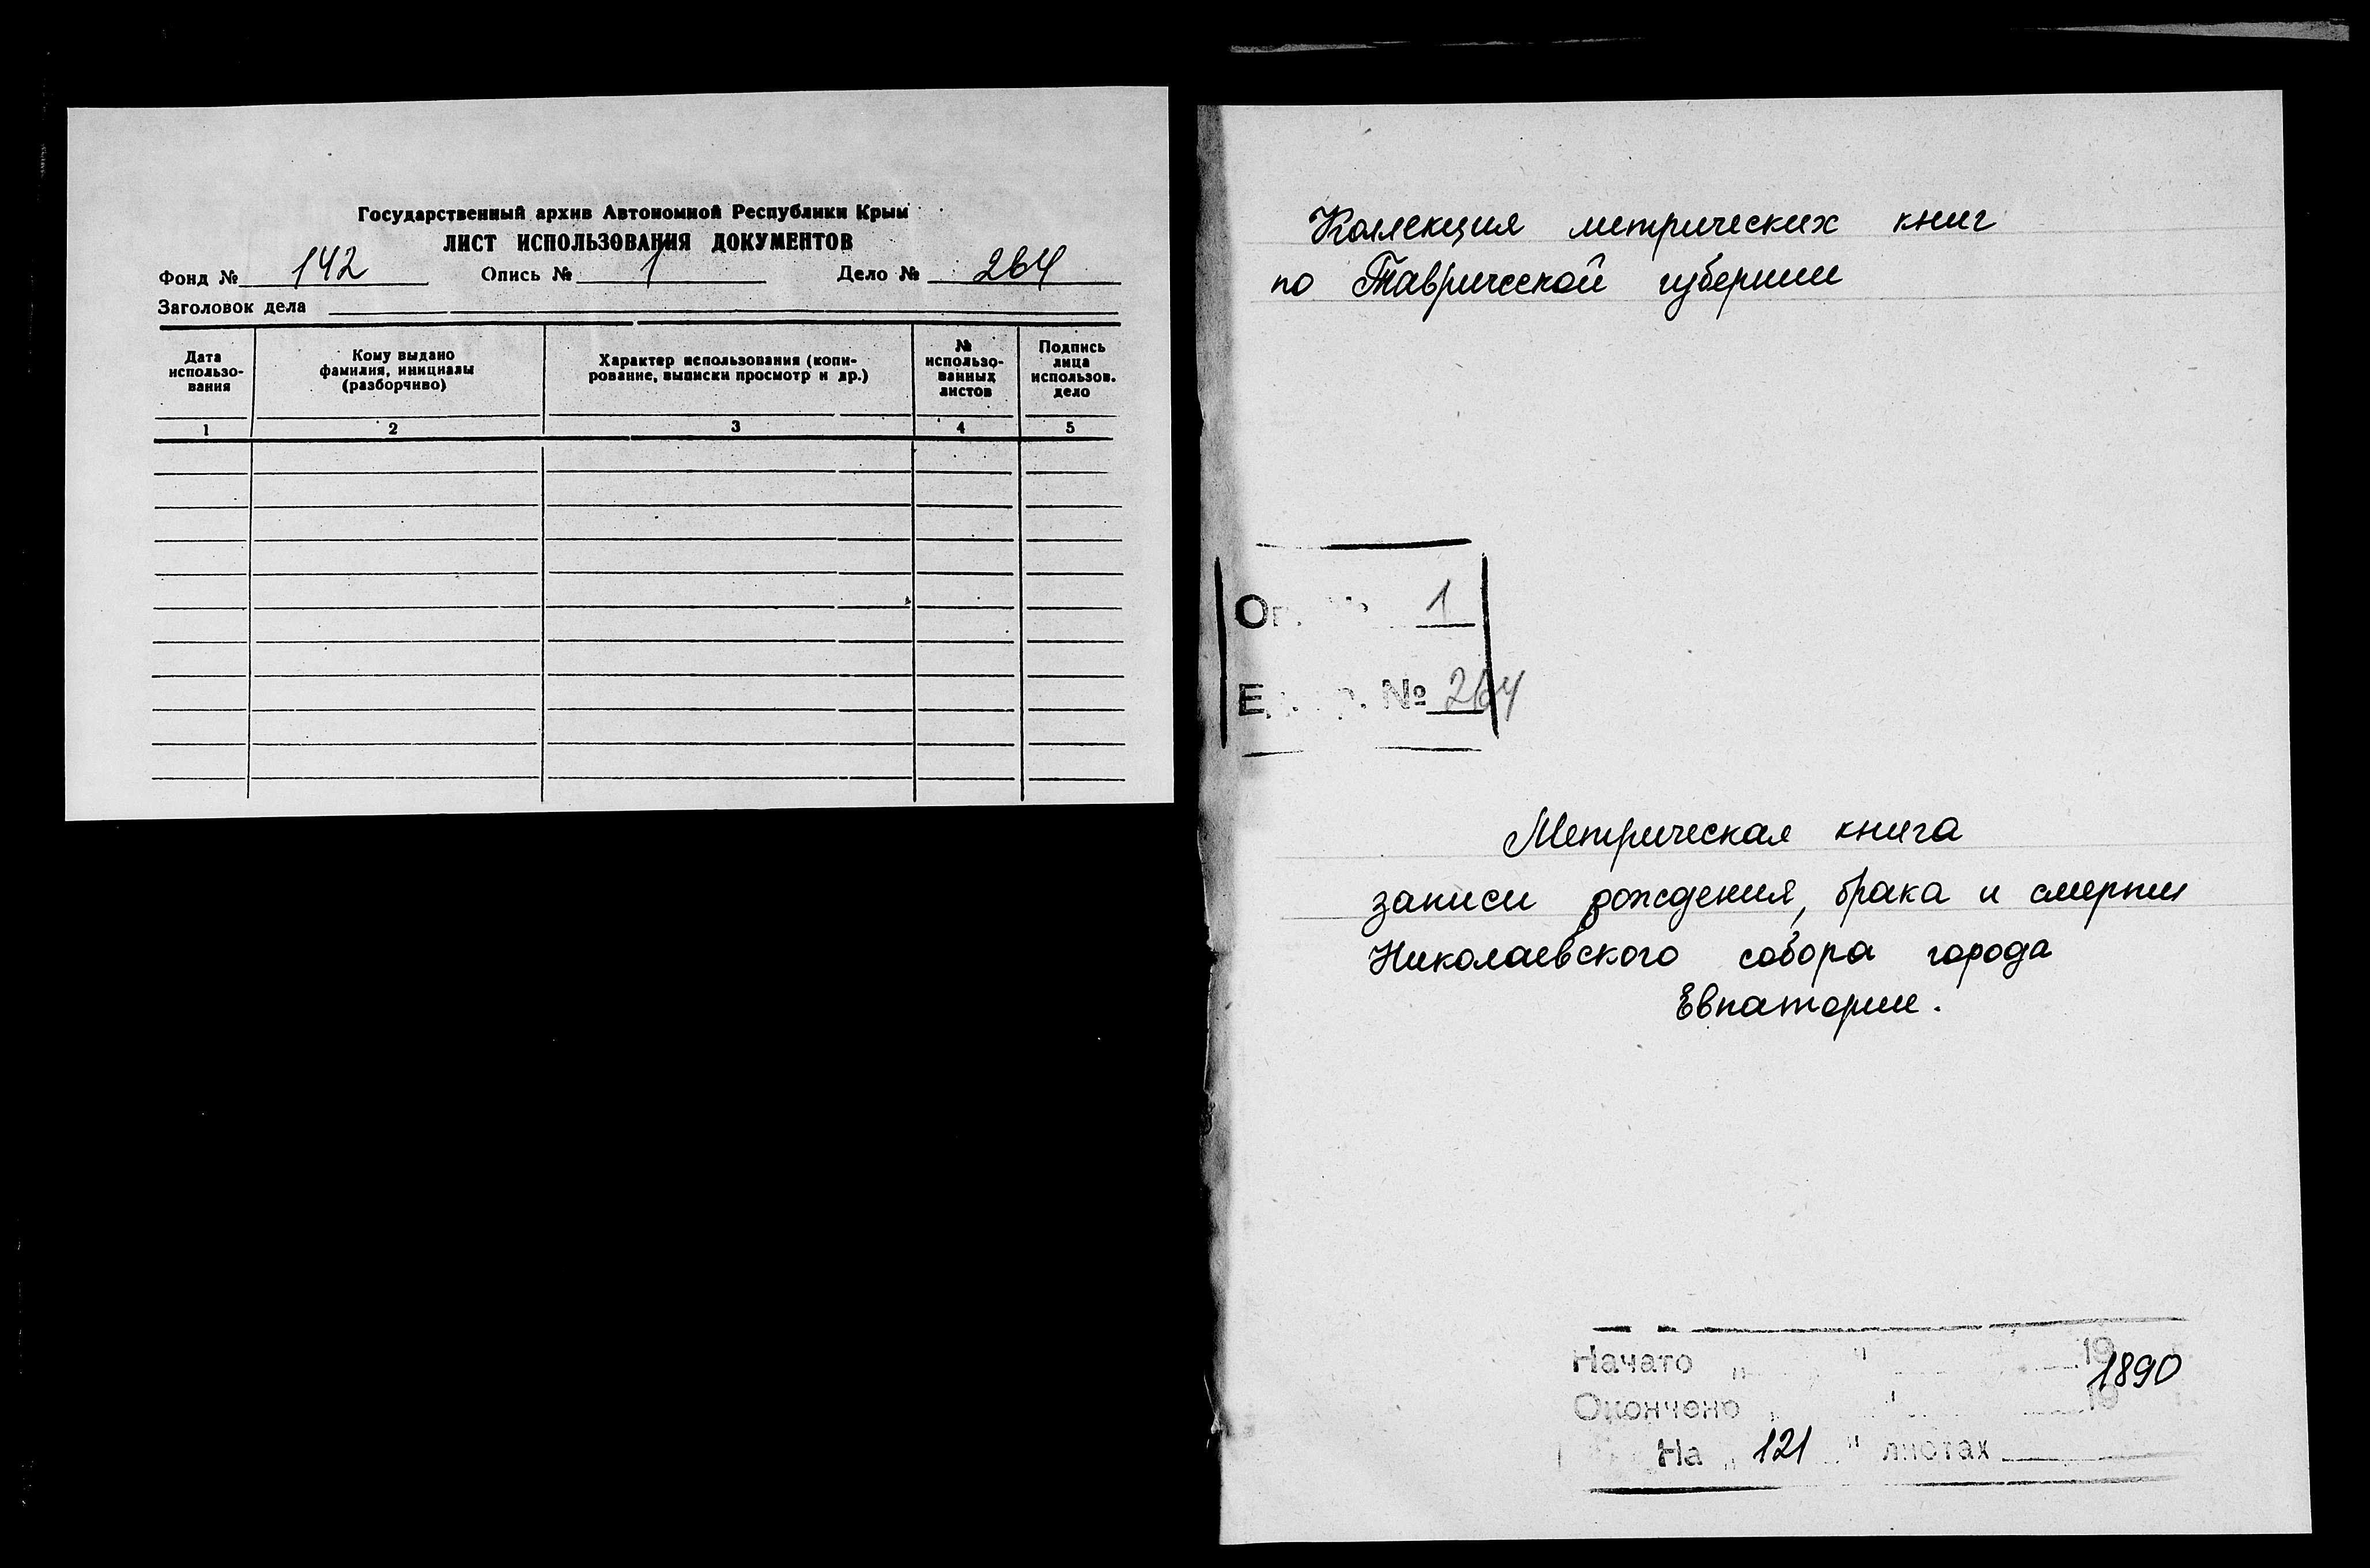 Государственный архив Автономной Республики Крым
ЛИСТ ИСПОЛЬЗОВАНИЯ ДОКУМЕНТОВ
Фонд № 142 Опись № 1 Дело № 264
Заголовок дела
Дата использо-вания
Кому выдано фамилия, инициалы (разборчиво)
Характер использования (копи-рование, выписки просмотр и др.)
№ использо-ванных листов
Подпись лица использов. дело
1 2 3 4 5
Коллекция метрических книг
по Таврической губернии
1
№ 264
Метрическая книга
записи рождения, брака и смерти
Николаевского собора города
Евпатории.
Начато " " 19
1890
Окончено " " 19
На " 121 " листах